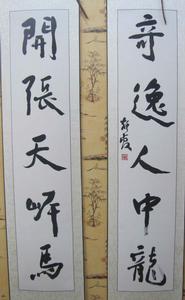 奇逸人中龍
開張天岸馬